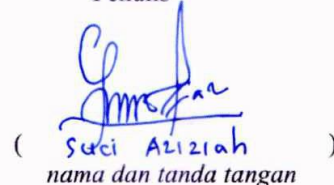 Penulis
( Suci Aziziah )
nama dan tanda tangan